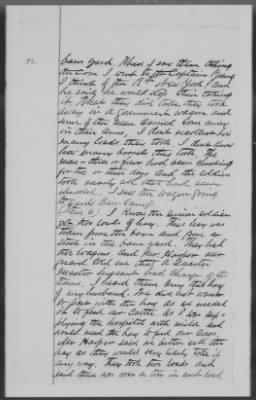 32.
barn yard. When I saw them taking
the corn I went to the Captain Young
I think of the 15th New York and
he said he would stop their taking
it. What they did take they took
away in a Government wagon and
some of the men carried corn away
in their arms, I don't recollect how
many loads they took. I don't know
how many hands they took. The
men three or four had been husking
for two or three days and the soldiers
took nearly all that had been
husked. I saw the wagon going
towards their Camp.
(Item 6) I know the Union soldiers
got two loads of hay. This hay was
taken from the barn and from a
stack in the barn yard. They had
two wagons and Mr Harper our
guard told me that a Quarter
Master Sergeant had charge of the
teams. I heard them buy that hay
of my husband. He did not want
to part with the hay as we needed
it to feed our Cattle. As I was sup-
plying the hospital with milk and
would need the hay to feed our Cows.
Mr Harper said we better sell the
hay as they would very likely take it
any way. They took two loads and
said there was over a ton in each load